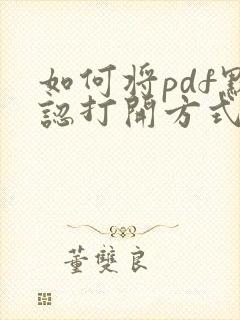 如何將pdf默
認打開方式
董雙良